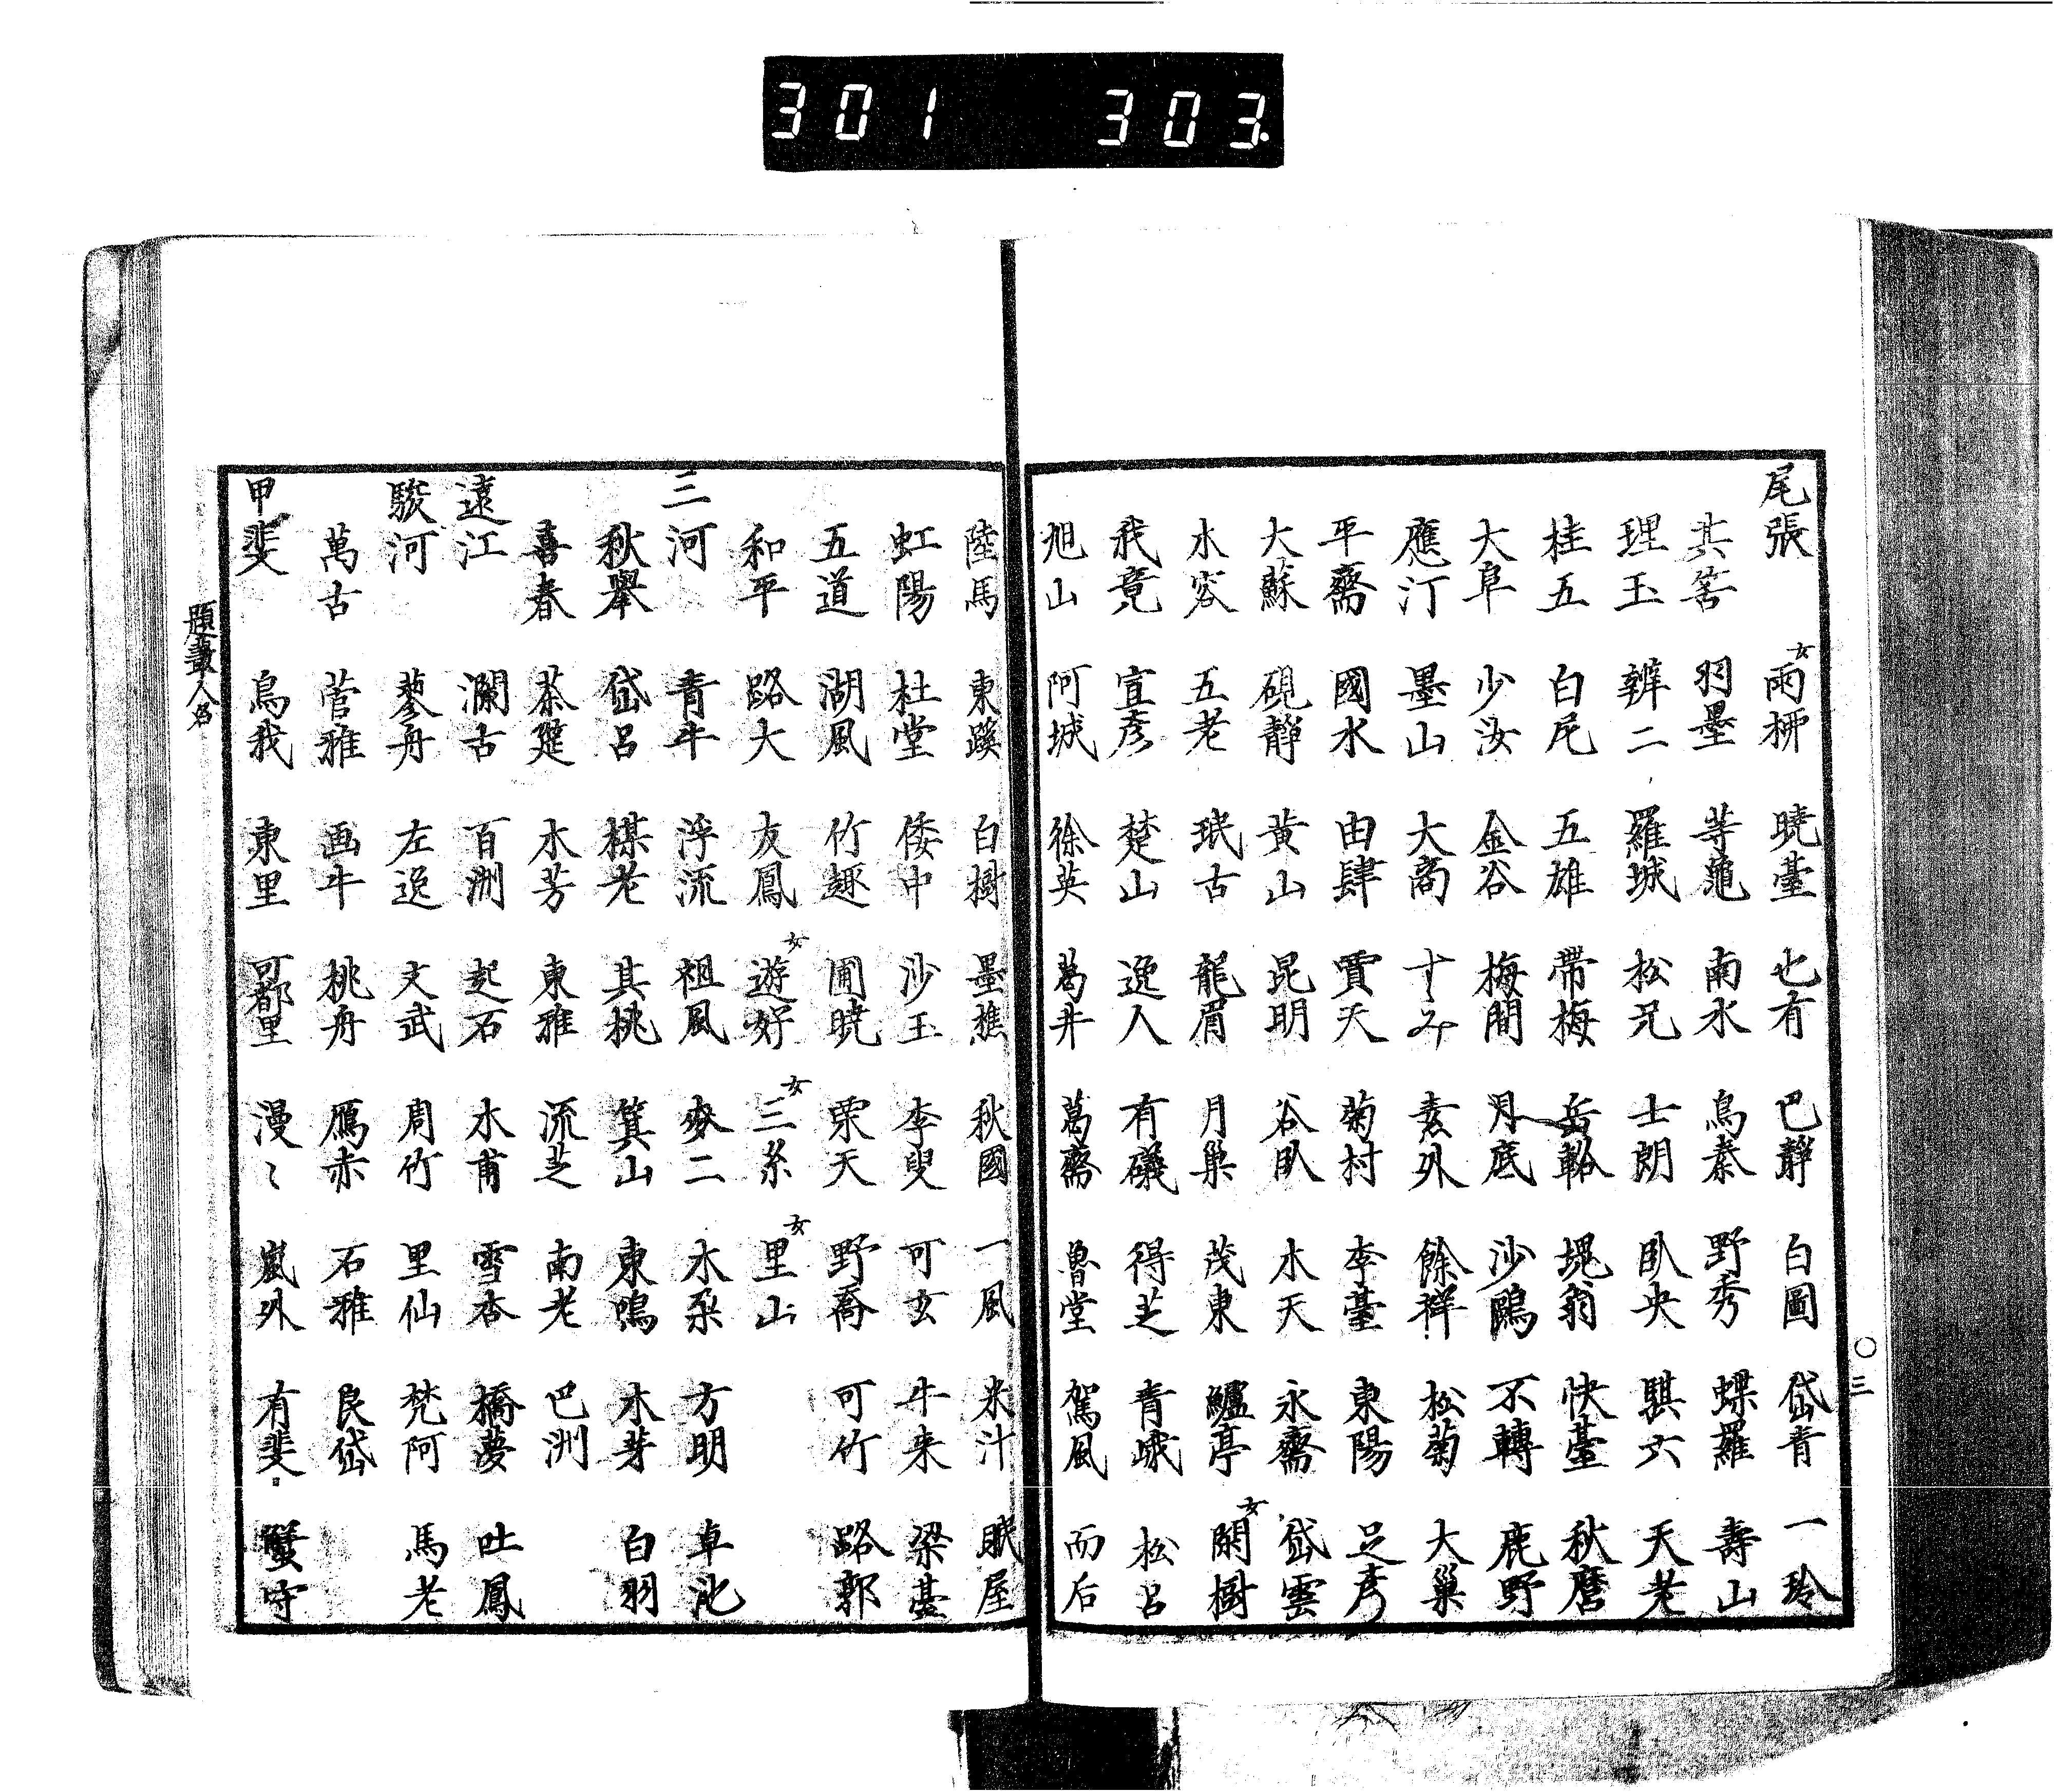 301 303
尾張 女雨栁 曉臺 也有 巴靜 白圖 岱青 一玲
其筈 羽墨 等龜 南水 烏秦 野秀 蝶羅 壽山
理玉 辨二 羅城 松兄 士朗 臥央 騏六 天老
桂五 白尾 五雄 帶梅 岳輅 塊翁 快臺 秋麿
大阜 少汝 金谷 梅間 月底 沙鷗 不轉 鹿野
應汀 墨山 大商 すみ 素外 餘祥 松菊 大巢
平齋 國水 由肆 賈天 菊村 李臺 東陽 足彥
大蘇 硯靜 黃山 昆明 谷臥 水天 永齋 岱雲
水容 五老 珉古 龍眉 月巢 茂東 鱸亭 女閑樹
我竟 宜彥 楚山 逸人 有礒 得芝 青峨 松呂
旭山 阿城 徐英 葛井 萬齋 魯堂 駕風 而后
陸馬 東蹊 白樹 墨樵 秋國 一風 米汁 眠屋
虹陽 杜堂 倭中 沙玉 李叟 可玄 牛来 梁臺
五道 湖風 竹趣 圃曉 栗天 野喬 可竹 路郭
和平 路大 友鳳 女遊好 女三糸 女里山
三河 青牛 浮流 祖風 麥二 木朶 方明 卓池
秋擧 岱呂 棋老 其桃 箕山 東鳴 木芽 白羽
喜春 茶筵 木芳 東雅 流芝 南老 巴洲
遠江 瀾古 百洲 起石 木甫 雪杏 橋夢 吐鳳
駿河 蓼舟 左逸 文武 周竹 里仙 梵阿 馬老
萬古 菅雅 画牛 桃舟 鴈赤 石雅 良岱
甲斐 烏我 東里 可都里 漫〻 嵐外 有斐 蟹守
題叢人名
三